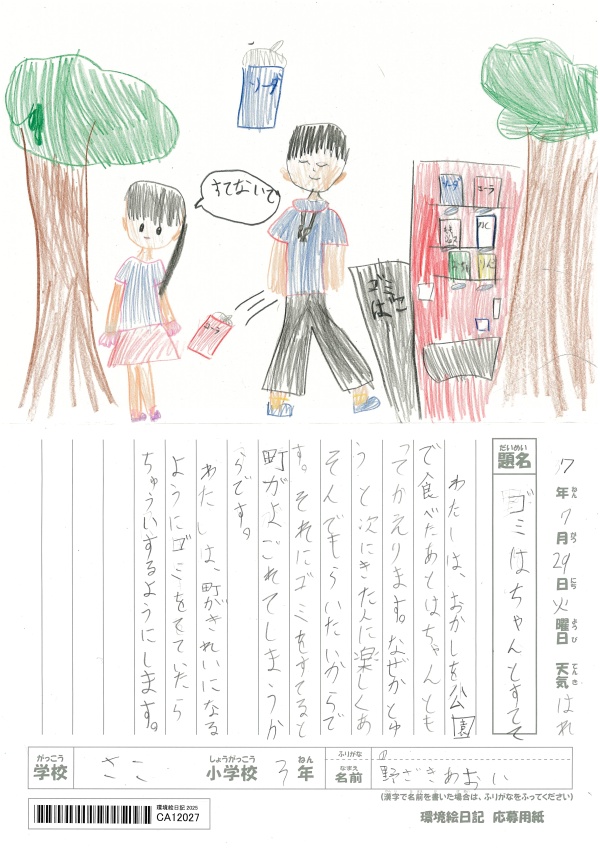 ソーダ
すてないで
コーラ
ゴミばこ
ソーダ
コーラ
17年7月29日火曜日 天気はれ
ねん
がつ
にち
ようび
てんき
だいめい
題名
ゴミはちゃんとすてて
わたしは、おかしを公園
で食べたあとはちゃんとも
ってかえります。なぜかとゆ
うと次にきた人に楽しくあ
そんでもらいたいからで
す。それにゴミをすてると
町がよごれてしまうか
らです。
わたしは、町がきれいになる
ようにゴミをてていたら
ちゅういするようにします。
がっこう
学校
さこ
しょうがっこう
小学校
3年
ねん
ふりがな
の
なまえ
名前
野ざきあおい
(漢字で名前を書いた場合は、ふりがなをふってください)
環境絵日記 2025
CA12027
環境絵日記 応募用紙